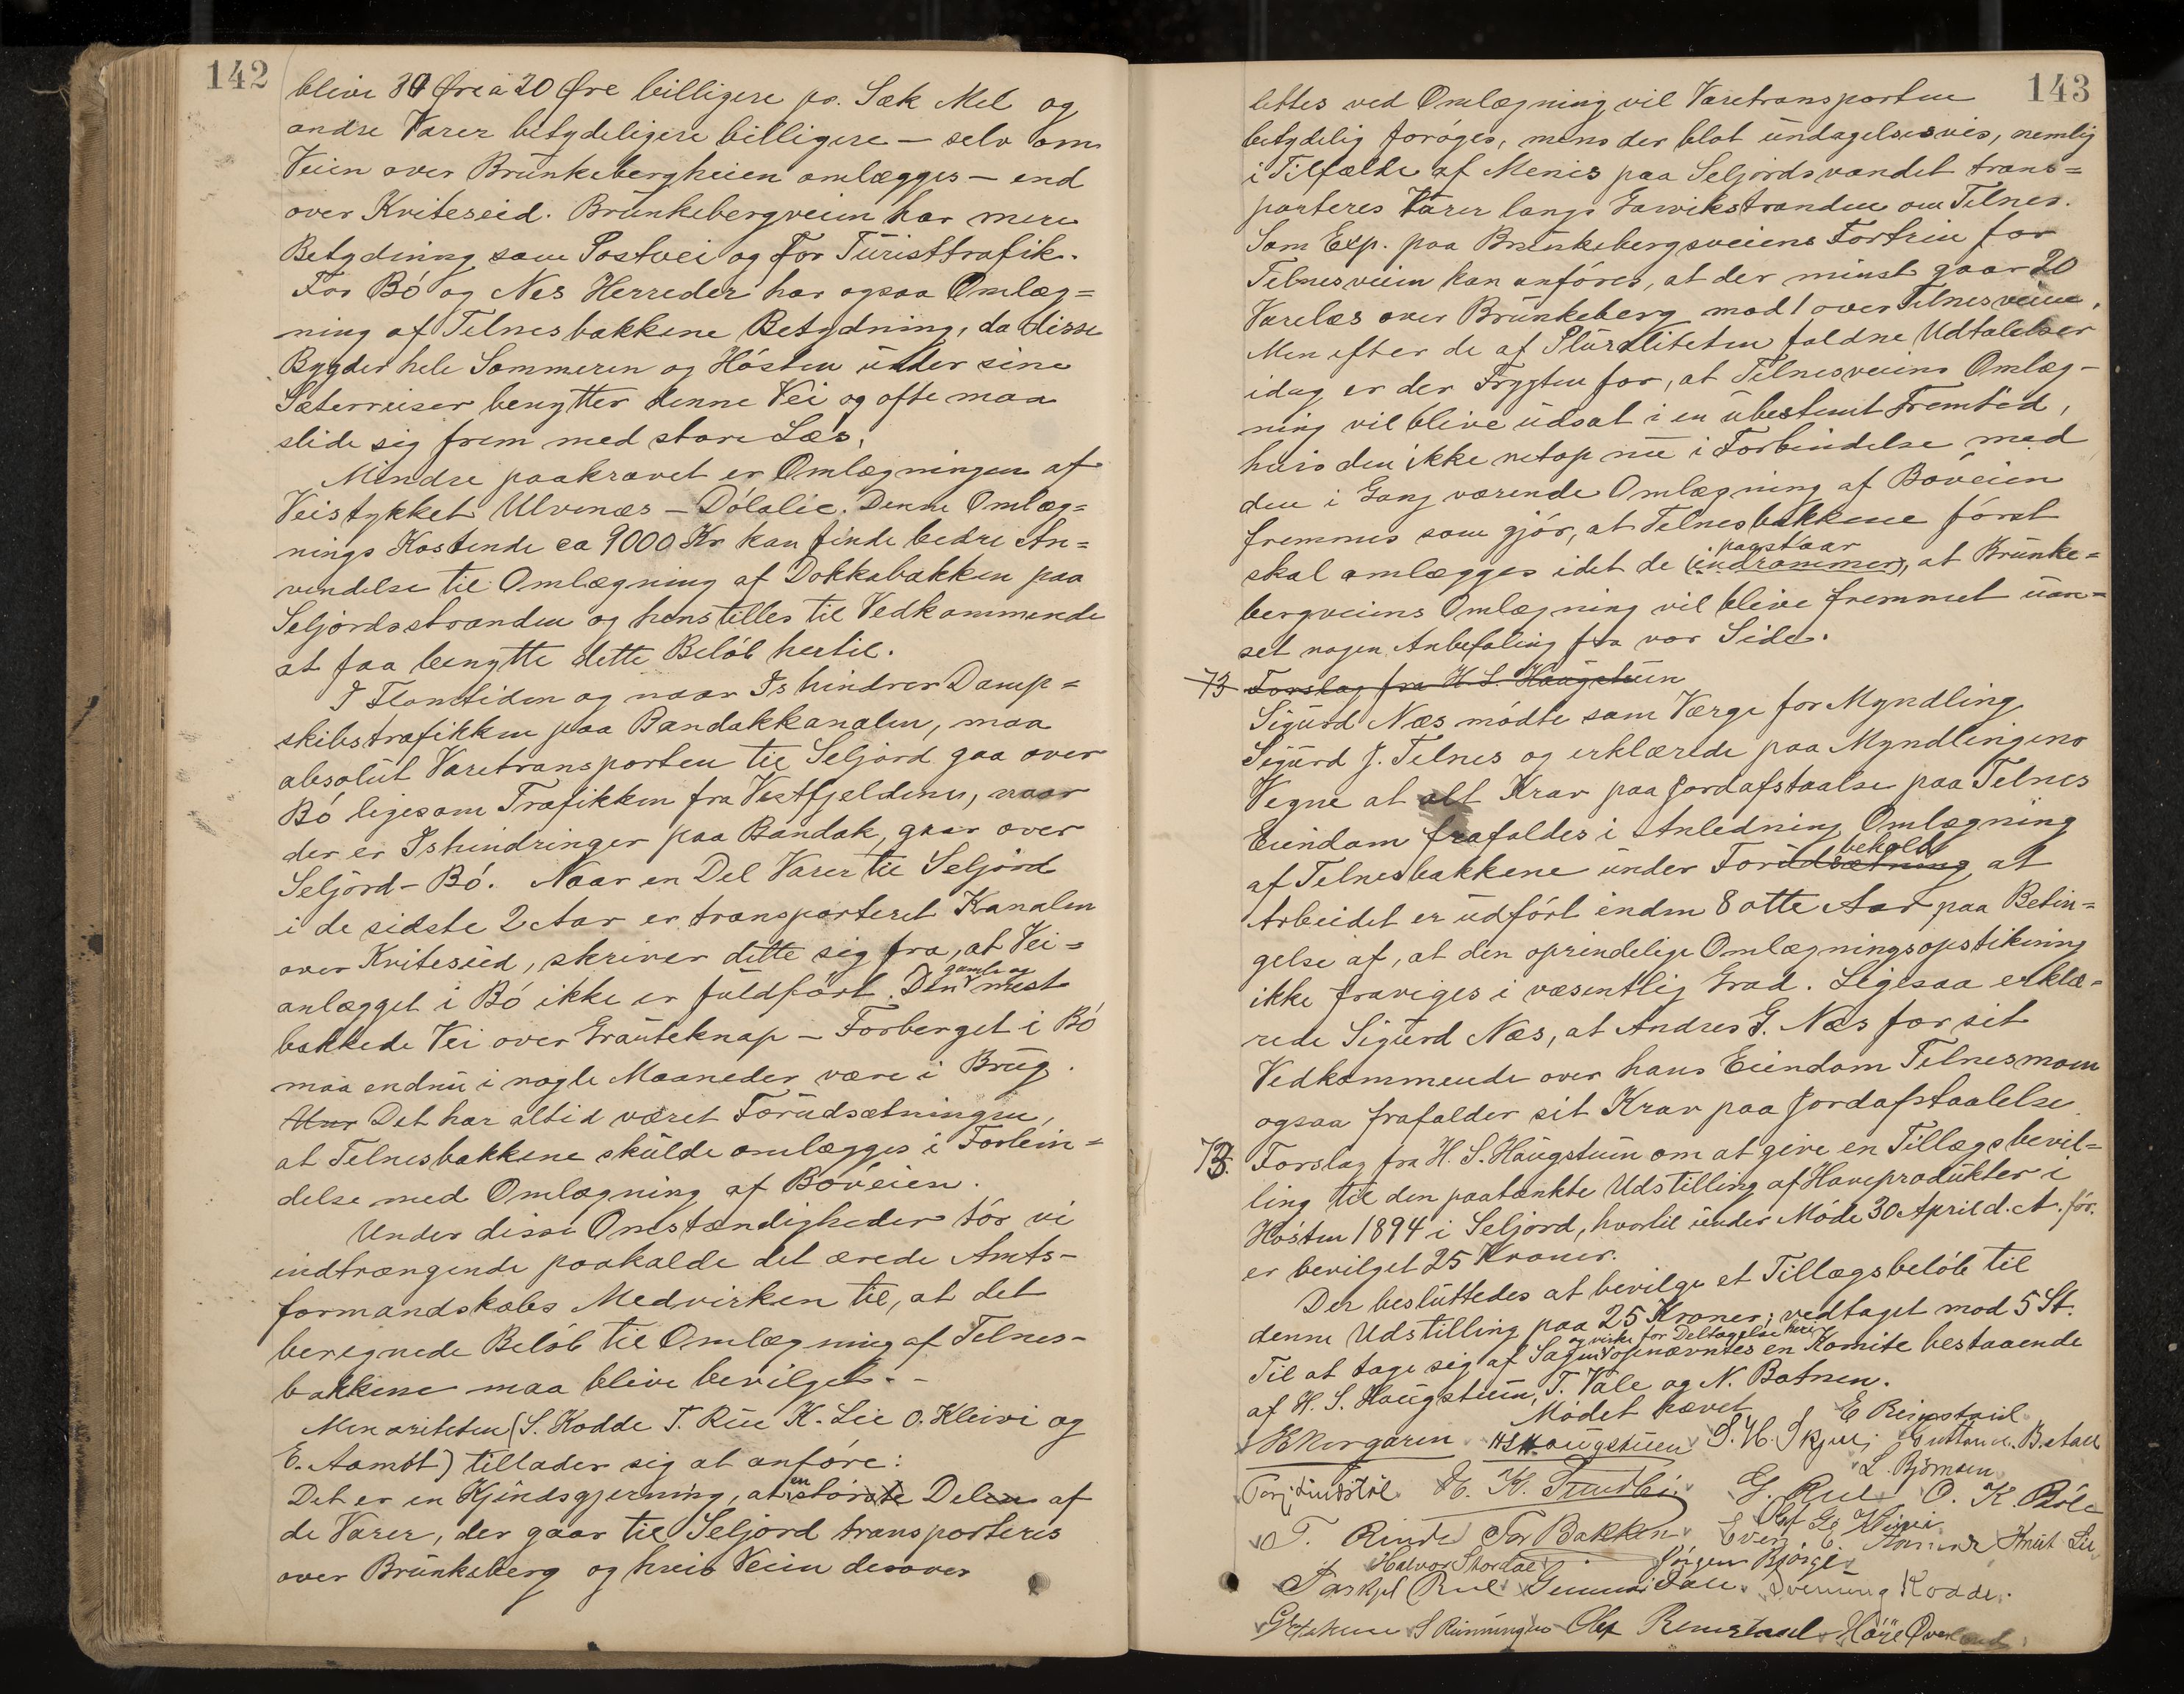 142
blive 30 Øre à 20 Øre billigere pr. Sæk Mel og
andre Varer betydeligere billigere – selv om
Veien over Brunkebergheien omlægges – end
over Kviteseid. Brunkebergveien har mere
Betydning som Postvei og for Turisttrafik.
For Bó og Nes Herreder har ogsaa Omlæg=
ning af Telnesbakkene Betydning, da disse
Bygder hele Sommeren og Hósten under sine
Sæterreiser benytter denne Vei og ofte maa
slide sig frem med store Læs.
Mindre paakrævet er Omlægningen af
Veistykket Ulvenæs – Dólalie. Denne Omlæg=
nings Kostende ca 9000 Kr kan finde bedre An=
vendelse til Omlægning af Dokkabakken paa
Seljordsstranden og henstilles til Vedkommende
at faa benytte dette Belób hertil.
I Flomtiden og naar Is hindrer Damp=
skibstrafikken paa Bandakkanalen, maa
absolut Varetransporten til Seljord gaa over
Bó ligesom Trafikken fra Vestfjeldene, naar
der er Ishindringer paa Bandak, gaar over
Seljord – Bó. Naar en Del Varer til Seljord
i de sidste 2 Aar er transporteret Kanalen
over Kviteseid, skriver dette sig fra, at Vei=
anlægget i Bó ikke er fuldfórt. Den gamle og mest
bakkede Vei over Grauteknap – Forberget i Bó
maa endnu i nogle Maaneder være i Brug.
Det har altid været Forudsætningen,
at Telnesbakkene skulde omlægges i Forbin=
delse med Omlægning af Bóveien.
Under disse Omstændigheder tór vi
indtrængende paakalde det ærede Amts-
formandskabs Medvirken til, at det
beregnede Belób til Omlægning af Telnes-
bakkene maa blive bevilget. –
Menoriteten (S. Kodde T. Rue K. Lie O. Kleivi og
E. Aamót) tillader sig at anfóre:
Det er en Kjendsgjerning, at en stórste Delen af
de Varer, der gaar til Seljord transporteres
over Brunkeberg og hvis Veien derover
143
lettes ved Omlægning vil Varetransporten
betydelig foróges, mens der blot undagelsesvis, nemlig
i Tilfælde af Menis paa Seljordsvandet trans=
porteres Varer langs Garvikstranden om Telnes.
Som Exp. paa Brunkebergsveiens Fortrin for
Telnesveien kan anfóres, at der minst gaar 20
Varelæs over Brunkeberg mod 1 over Telnesveien.
Men efter de af Pluraliteten faldne Udtalelser
idag er der Frygten for, at Telnesveiens Omlæg-
ning vil blive udsat i en ubestemt Fremtid,
hvis den ikke netop nu i Forbindelse med
den i Gang værende Omlægning af Bóveien
fremmes som gjór, at Telnesbakkene fórst
skal omlægges idet de (indrømmer) paastaar, at Brunke=
bergveiens Omlægning vil blive fremmet uan=
set nogen Anbefaling fra vor Side.
73 Forslag fra H. S. Haugstuen
Sigurd Næs módte som Værge for Myndling
Sigurd J. Telnes og erklærede paa Myndlingens
Vegne at alt Krav paa Jordafstaalse paa Telnes
Eiendom frafaldes i Anledning Omlægning
af Telnesbakkene under Forudsætning behold at
Arbeidet er udfórt inden 8 otte Aar paa Betin=
gelse af, at den oprindelige Omlægningsopstikning
ikke fraviges i væsentlig Grad. Ligesaa erklæ=
rede Sigurd Næs, at Andres G. Næs for sit
Vedkommende over hans Eiendom Telnesmoen
ogsaa frafalder sit Krav paa Jordafstaalelse.
73. Forslag fra H. S. Haugstuen om at give en Tillægsbevil=
ling til den paatænkte Udstilling af Haveprodukter i
Hósten 1894 i Seljord, hvortil under Móde 30 April d. A. fór.
er bevilget 25 Kroner.
Der besluttedes at bevilge et Tillægsbelób til
denne Udstilling paa 25 Kroner; vedtaget mod 5 St.
Til at tage sig af Sagen og virke for Deltagelse heri opnævntes en Komite bestaaende
af H. S. Haugstuen, T. Vale og N. Botnen.
Módet hævet
H S Haugstuen S. H. Skjulj
L. Bjórnsen
G. Rue O. K. Bóle
T. Rinde Tor Bakken Olaf G. Kleivi Knut Lie
Halvor Jórgen Bjórge
Taskjel Rue Svenung Kodde.
S Rünningen Olaf